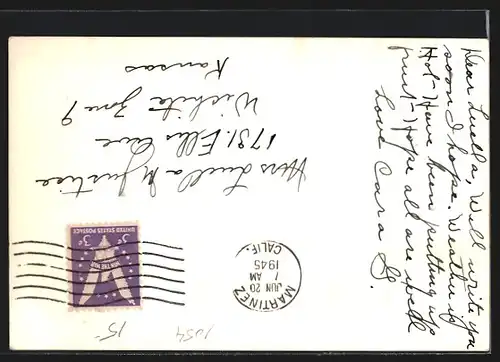 Dear Luella, Will write you
soon I hope. Weather is
Hot - Have been putting up
fruit - Hope all are well
Love Cara G.
MARTINEZ
JUN 20
7 AM
1945
CALIF.
UNITED STATES POSTAGE
WIN THE WAR
3¢ 3¢
Mrs Luella M Justice
1731. Ellis Ave
Wichita Zone 9
Kansas
15
1054